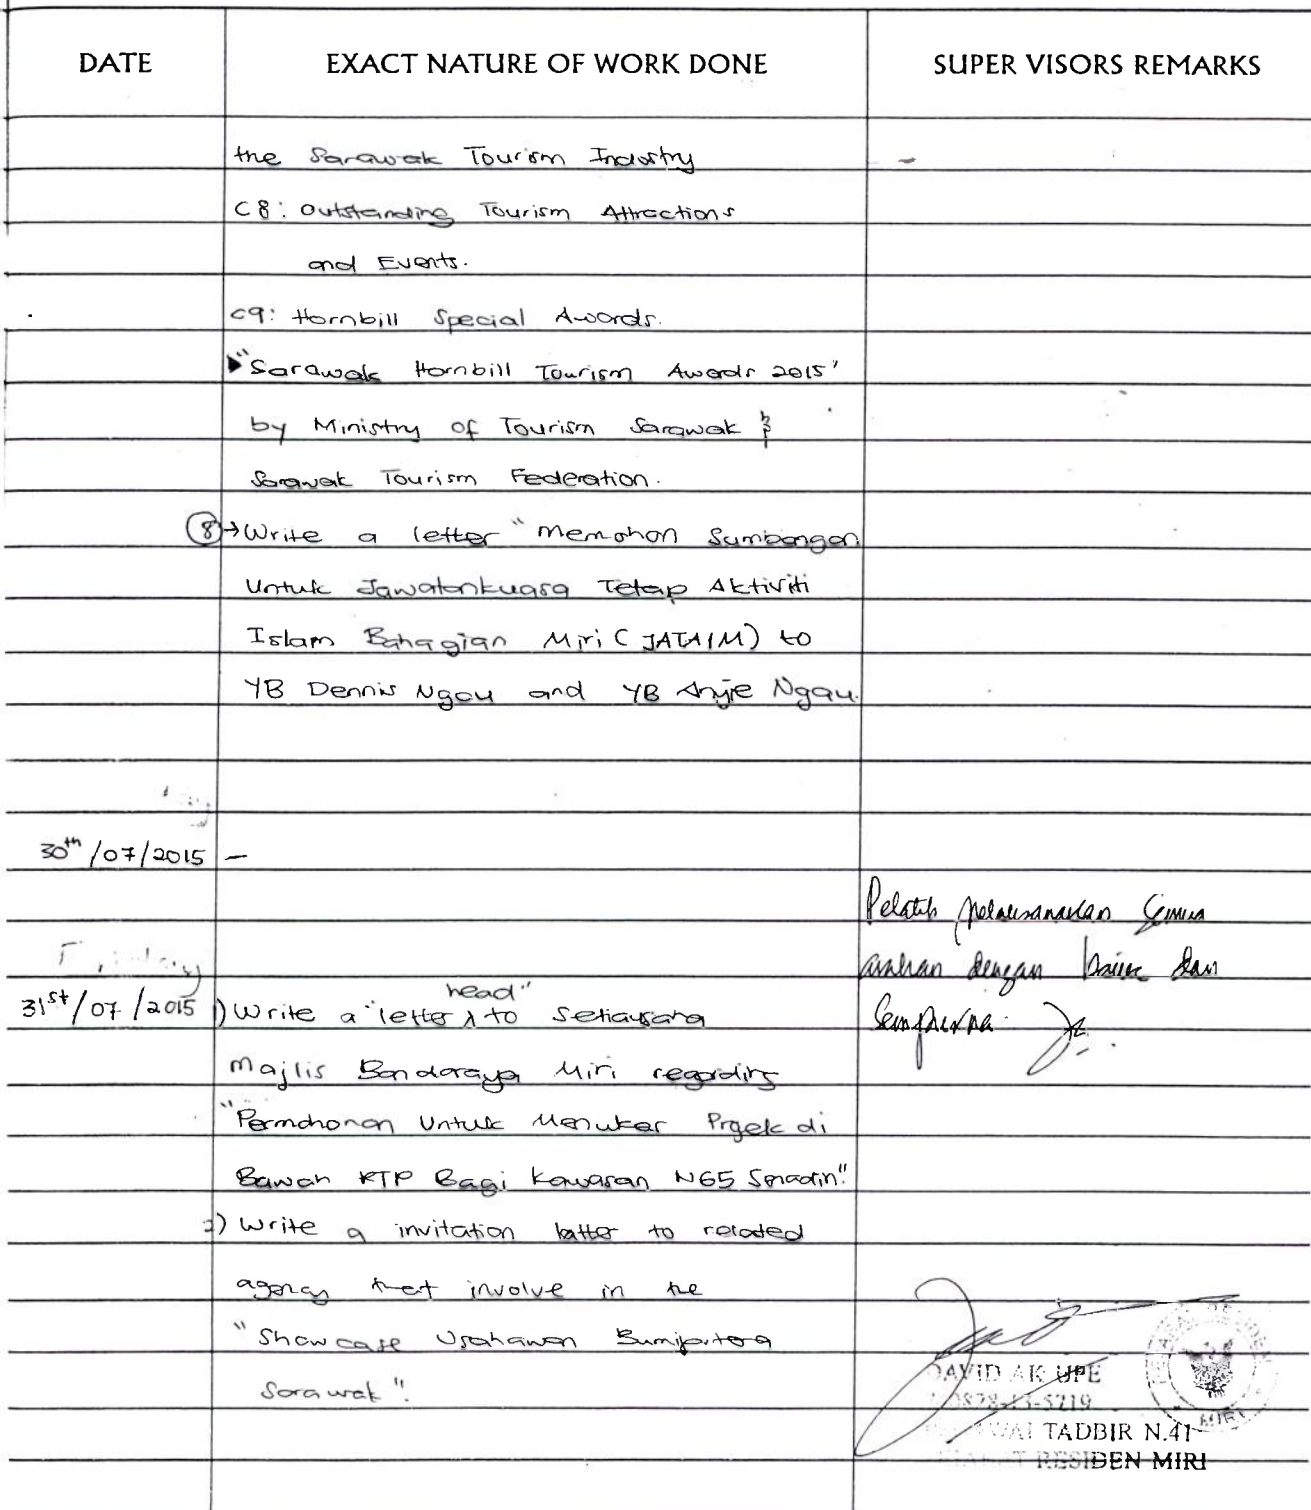 DATE EXACT NATURE OF WORK DONE SUPER VISORS REMARKS
the Sarawak Tourism Industry
C8: Outstanding Tourism Attractions
and Events.
C9: Hornbill Special Awards.
"Sarawak Hornbill Tourism Awards 2015'
by Ministry of Tourism Sarawak &
Sarawak Tourism Federation.
8 → Write a letter "Memohon Sumbangan
Untuk Jawatankuasa Tetap Aktiviti
Islam Bahagian Miri (JATAIM) to
YB Dennis Ngau and YB Anyie Ngau.
30th /07/2015 -
Pelatih melaksanakan semua
arahan dengan baik dan
sempurna.
31st/07/2015 1) Write a "letter head" to Setiausaha
Majlis Bandaraya Miri regarding
"Permohonan Untuk Menukar Projek di
Bawah RTP Bagi Kawasan N65 Senadin."
2) Write a invitation latter to related
agency that involve in the
"Showcase Usahawan Bumiputera
Sarawak".
DAVID AK UPE
TADBIR N.41
RESIDEN MIRI
MIRI